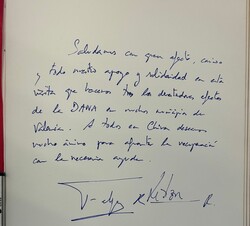 Saludamos con gran afecto, cariño
y todo nuestro apoyo y solidaridad en esta
visita que hacemos tras los devastadores efectos
de la DANA en muchos municipios de
Valencia. A todos en Chiva deseamos
mucho ánimo para afrontar la recuperación
con la necesaria ayuda.
Felipe R Letizia R.